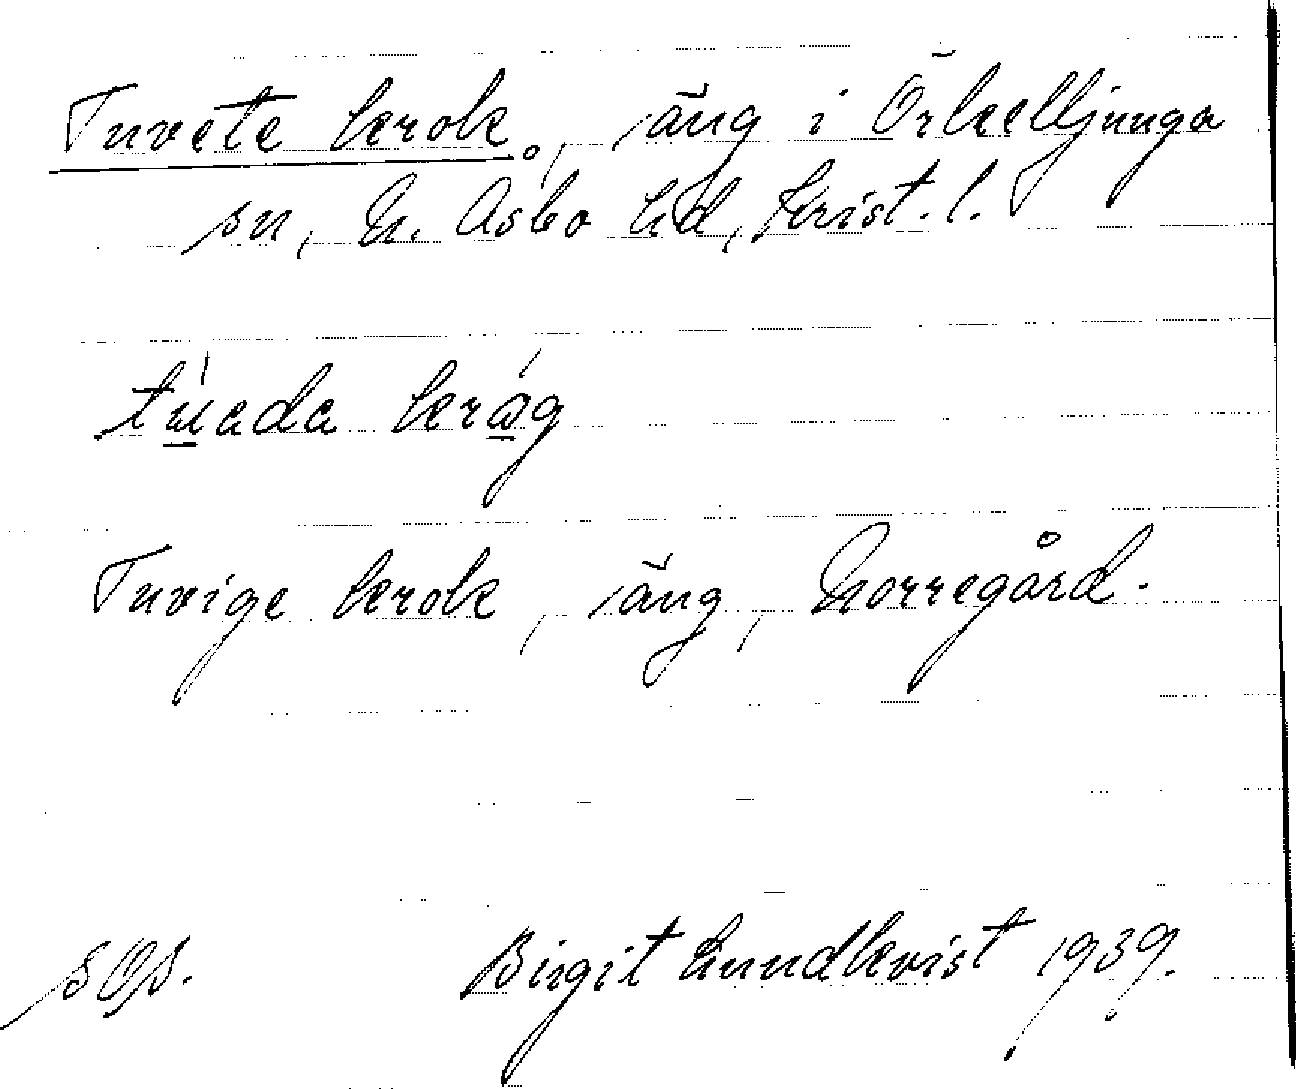 Tuvete krok, äng i Örkelljunga
sn, N. Åsbo hd, Krist. l.
túada kråg
Tuvige krok, äng, Norregård.
Birgit Lundkvist 1939.